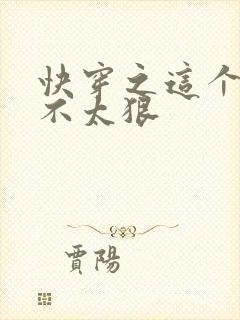 快穿之這个
不太狠
賈陽